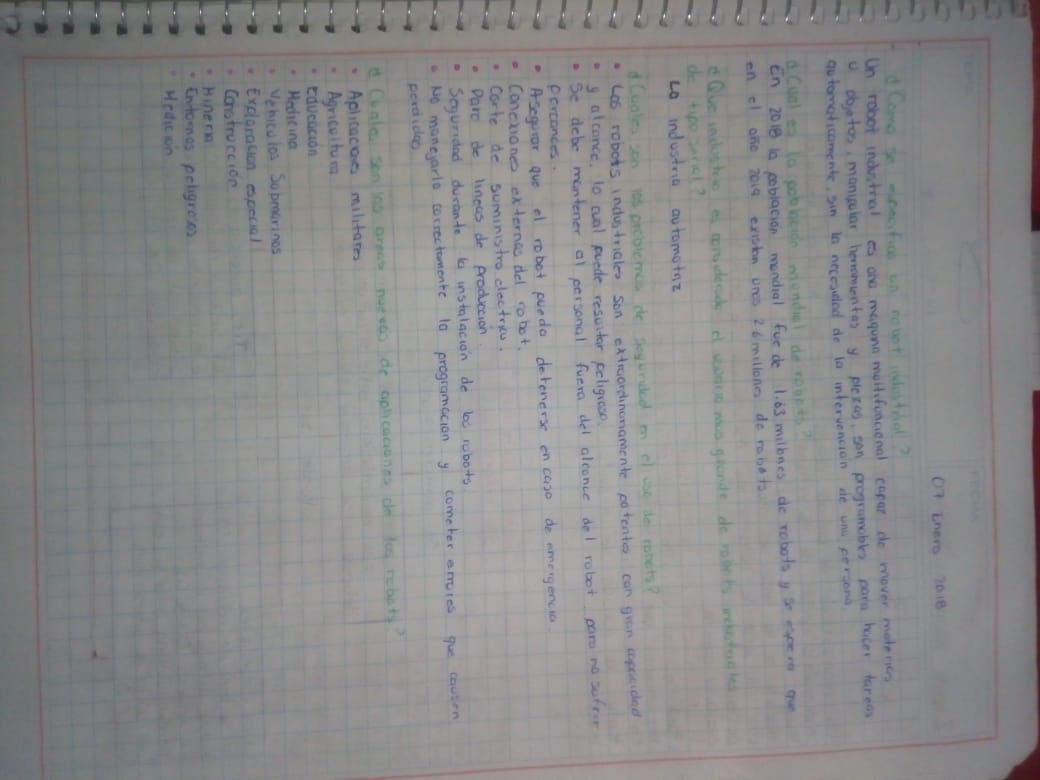 07 Enero 2018
¿Como se especifica un robot industrial?
Un robot industrial es una maquina multifuncional capaz de mover materias
u objetos, manipular herramientas y piezas, son programables para hacer tareas
automaticamente, sin la necesidad de la intervencion de una persona
¿Cual es la población mundial de robots?
En 2018 la población mundial fue de 1.63 millones de robots y se espera que
en el año 2019 existan unos 2.6 millones de robots.
¿Que industria es considerada el usuario mas grande de robots industriales
de tipo serial?
La industria automotriz
¿Cuales son los problemas de seguridad en el uso de robots?
• Los robots industriales son extraordinariamente potentes con gran capacidad
• y alcance, lo cual puede resultar peligroso.
• Se debe mantener al personal fuera del alcance del robot para no sufrir
percances.
• Asegurar que el robot pueda detenerse en caso de emergencia.
• Conexiones externas del robot.
• Corte de suministro electrico.
• Paro de lineas de producción.
• Seguridad durante la instalación de los robots.
• No manegarlo correctamente la programación y cometer errores que causen
perdidas
¿Cuales son las areas nuevas de aplicaciones de los robots?
• Aplicaciones militares
• Agricultura
• Educación
• Medicina
• Vehiculos Submarinos
• Exploracion espacial
• Construcción
• Mineria
• Entornos peligrosos
• Medicion